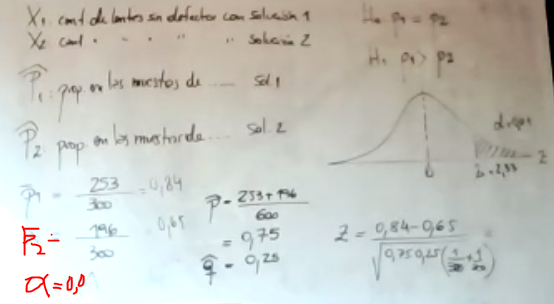 X₁ cant de lentes sin defectos con solución 1
X₂ cant " " " " " solución 2
H₀ p₁ = p₂
H₁ p₁ > p₂
P̂₁: prop. en las muestras de ..... sol. 1
P̂₂ prop. en las muestras de .... sol. 2
z
0
p̂₁ = 253/300 = 0,84
p̂ = 253+196/600
196/300 0,65
= 0,75
q̂ = 0,25
Z = 0,84-0,65/√0,75 0,25 (1/300 + 1/300) =
P̄₂ =
α=0,0